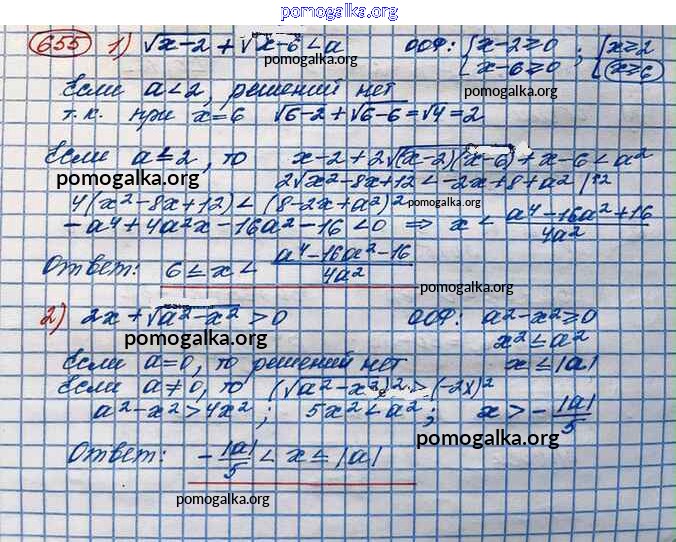 pomogalka.org
655 1) √x-2 + √x-6 < a ООФ: {x-2≥0 {x-6≥0 ; {x≥2 {x≥6
pomogalka.org
Если a<2, решений нет pomogalka.org
т.к. при x=6 √6-2+√6-6=√4=2
Если a≥2, то x-2+2√(x-2)(x-6)+x-6<a²
pomogalka.org 2√x²-8x+12 < -2x+8+a² |↑2
4(x²-8x+12)<(8-2x+a²)² pomogalka.org
-a⁴+4a²x-16a²-16<0 ⇒ x< a⁴-16a²+16 / 4a²
Ответ: 6≤x< a⁴-16a²-16 / 4a² pomogalka.org
2) 2x+√a²-x²>0 ООФ: a²-x²≥0
pomogalka.org x²≤a²
Если a=0, то решений нет x≤|a|
Если a≠0, то (√a²-x²)²>(-2x)²
a²-x²>4x²; 5x²<a²; x>-|a|/5
pomogalka.org
Ответ: -|a|/5<x≤|a|
pomogalka.org